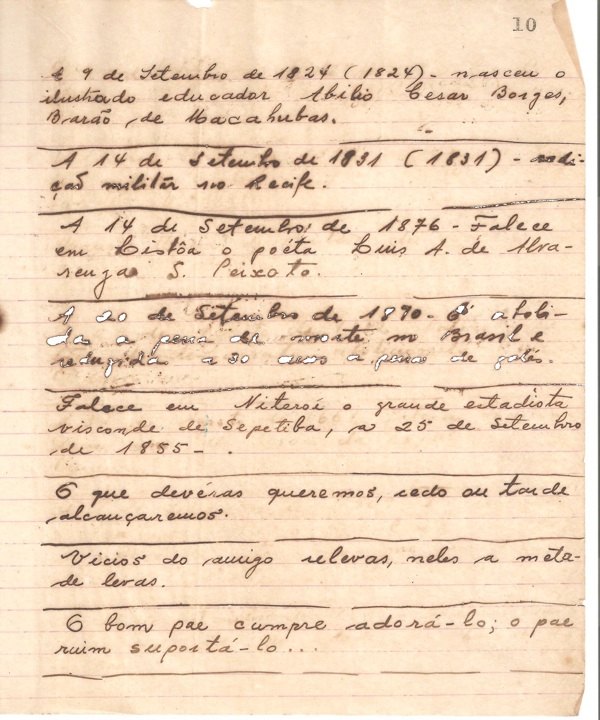 10
A 9 de Setembro de 1824 (1824) - nasceu o
ilustrado educador Abilio Cesar Borges,
Barão de Macahubas.
A 14 de Setembro de 1831 (1831) - sedi-
ção militar no Recife.
A 14 de Setembro de 1876 - Falece
em Lisbôa o poéta Luis A. de Alva-
renga S. Peixoto.
A 20 de Setembro de 1890 - É aboli-
da a pena de morte no Brasil e
redusida a 30 anos a pena de galés.
Falece em Niteroi o grande estadista
visconde de Sepetiba, a 25 de Setembro
de 1855 - .
O que devéras queremos, cedo ou tarde
alcançaremos.
Vicios do amigo relevas, neles a meta-
de levas.
O bom pae cumpre adorá-lo; o pae
ruim suportá-lo...